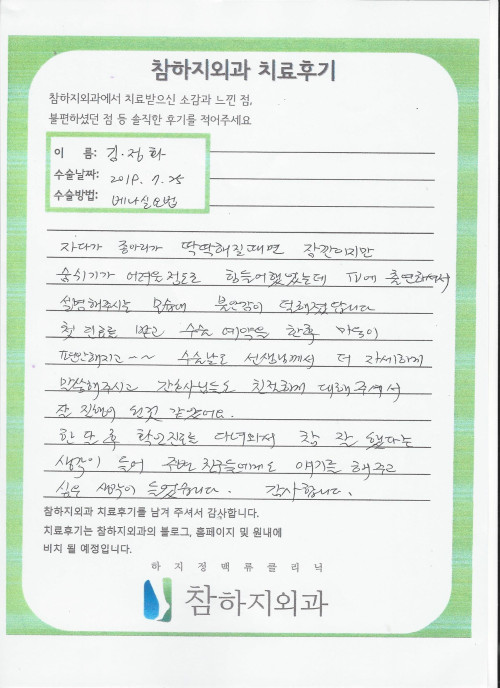 참하지외과 치료후기
참하지외과에서 치료받으신 소감과 느낀 점,
불편하셨던 점 등 솔직한 후기를 적어주세요
이 름: 김·정화
수술날짜: 2019. 7. 25
수술방법: 베나실요법
자다가 종아리가 딱딱해질때면 잠깐이지만
숨쉬기가 어려울정도로 힘들어했었는데 TV에 출연하셔서
설명해주시는 모습에 불안감이 덜해졌답니다
첫 진료를 받고 수술 예약을 한후 마음이
편안해지고~~ 수술날도 선생님께서 더 자세하게
말씀해주시고 간호사님들도 친절하게 대해주셔서
잘 진행이 된것 같았어요.
한 달 후 확인진료를 다녀와서 참 잘 했다는
생각이 들어 주변 친구들에게도 얘기를 해주고
싶은 생각이 들었습니다. 감사합니다.
참하지외과 치료후기를 남겨 주셔서 감사합니다.
치료후기는 참하지외과의 블로그, 홈페이지 및 원내에
비치 될 예정입니다.
하지정맥류클리닉
참하지외과